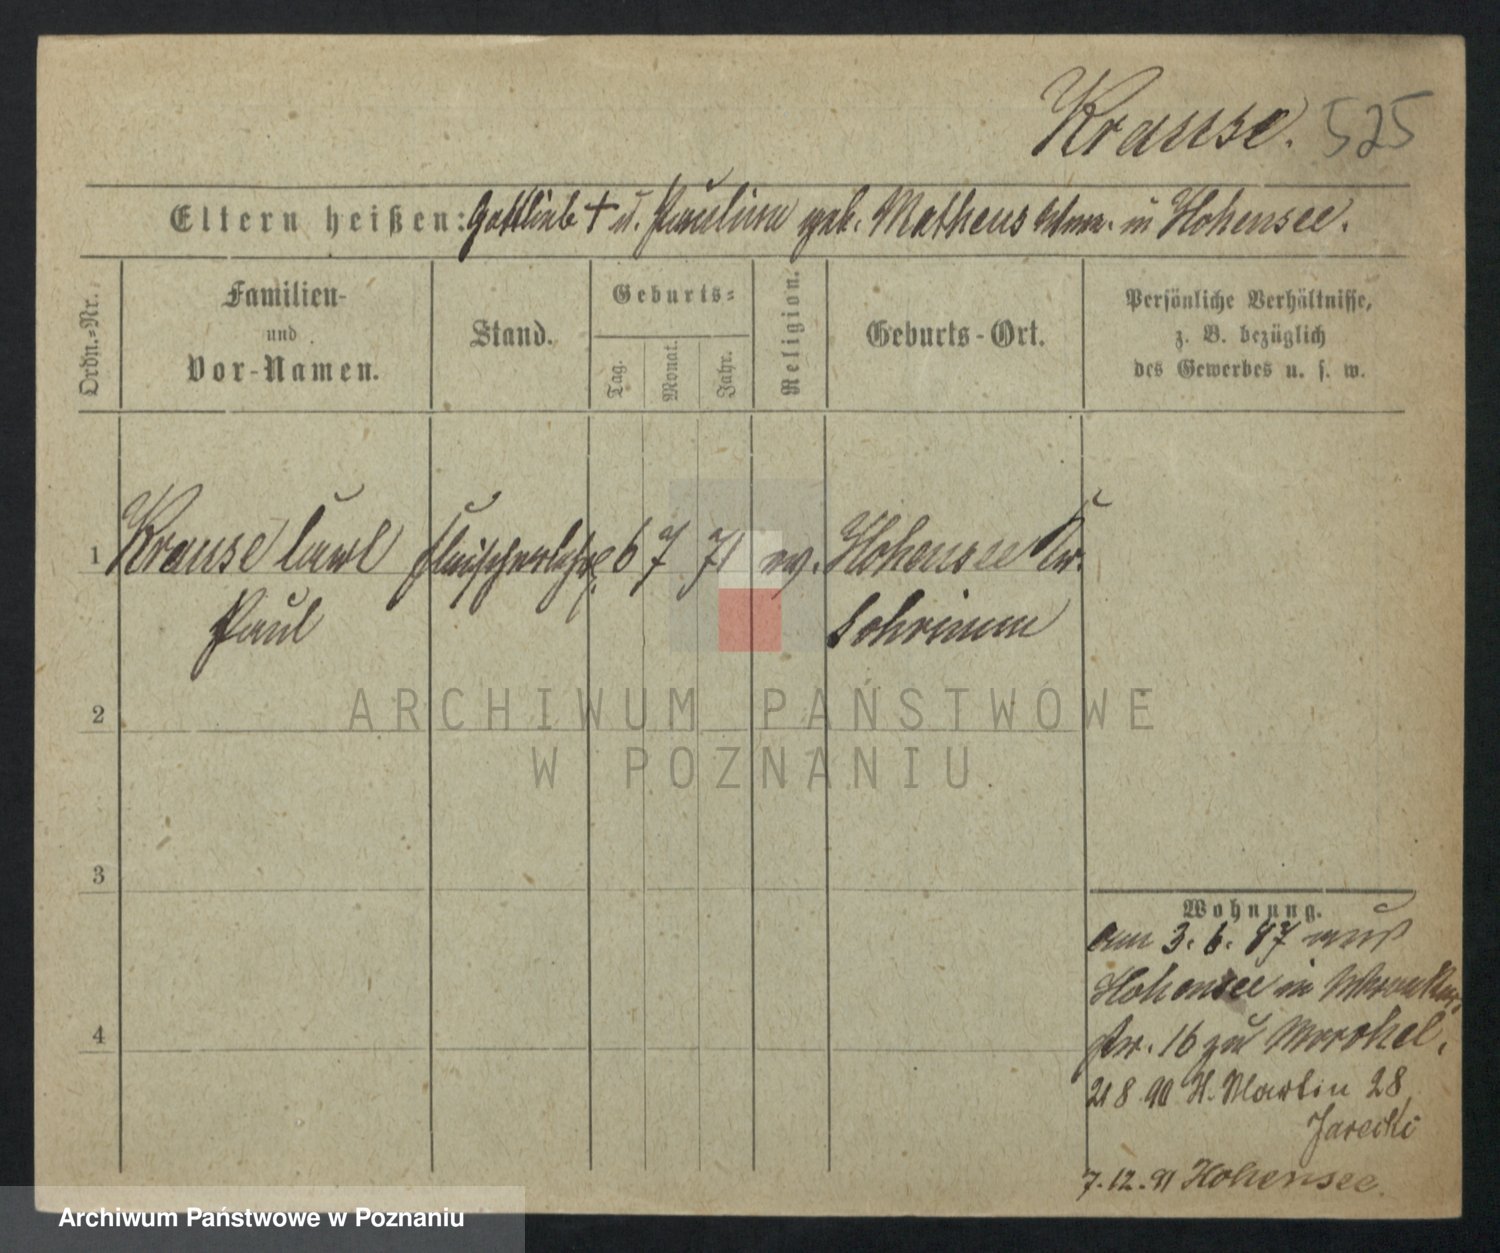 Krause. 525
Eltern heißen: Gottlieb † u. Pauline geb. Matheus in Hohensee.
Ordn.-Nr.
Familien-
und
Vor-Namen.
Stand.
Geburts-
Tag.
Monat.
Jahr.
Religion.
Geburts-Ort.
Persönliche Verhältnisse,
z. B. bezüglich
des Gewerbes u. s. w.
1 Krause Carl Fleischerlehrl. 6 7 71 ev. Hohensee Kr.
Paul Schrimm
2
3
4
Wohnung.
am 3. 6. 87 aus
Hohensee in
str. 16 zu
21 8 90 H. Martin 28
Jarecki
7. 12. 91 Hohensee.
ARCHIWUM PAŃSTWOWE
W POZNANIU
Archiwum Państwowe w Poznaniu